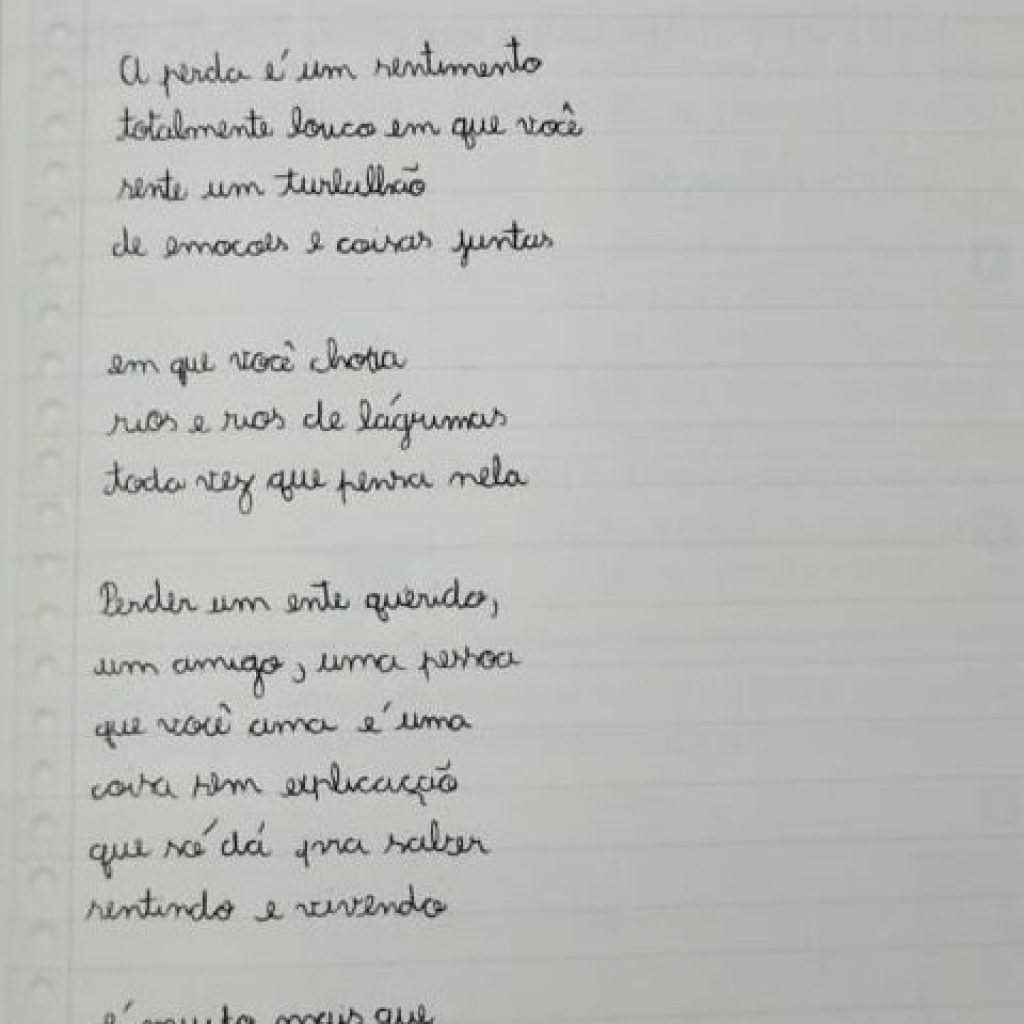 A perda é um sentimento
totalmente louco em que você
sente um turbulhão
de emocoes e coisas juntas
em que você chora
rios e rios de lágrimas
toda vez que pensa nela
Perder um ente querido,
um amigo, uma pessoa
que você ama é uma
coisa sem explicacção
que só dá pra saber
sentindo e vivendo
é muito mais que